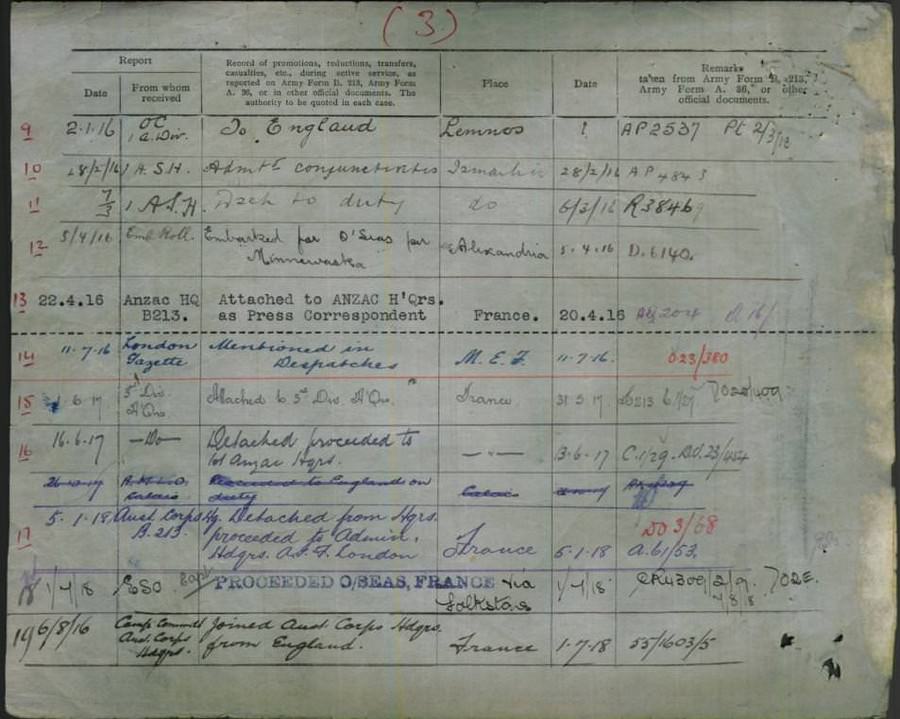 (3)
Report
Date
From whom received
Record of promotions, reductions, transfers,
casualties, etc., during active service, as
reported on Army Form B. 213, Army Form
A. 36, or in other official documents. The
authority to be quoted in each case.
Place
Date
Remarks
taken from Army Form B. 213,
Army Form A. 36, or other
official documents.
9 2.1.16 OC 1 A. Div. To England Lemnos AP2537 Pt 2/3/13
10 28/2/16 1 A.S.H. Admtd conjunctivitis 28/2/16 AP 4843
11 7/3 1 A.S.H. Dsch to duty do 6/3/16
12 5/4/16 Emb Roll. Embarked for O'Seas per Alexandria 5.4.16 D.6140.
Minnewaska
13 22.4.16 Anzac HQ Attached to ANZAC H'Qrs.
B213. as Press Correspondent France. 20.4.16
14 11-7-16 London Mentioned in
Gazette Despatches M.E.F. 11-7-16. 023/380
15 6.17 5th Div. Attached to 5th Div. H'Qrs. France 31.5.17
H'Qrs
16 16.6.17 —Do— Detached proceeded to
1st Anzac Hqrs. —"— 3-6-17 C.1/29. DO.23/454
Calais Proceeded to England on
duty Calais
17 5.1.18 Aust. Corps Hq. Detached from Hqrs. DO 3/68
B.213. proceeded to Admin.
Hdqrs. A.I.F. London France 5.1.18 A.61/53.
18 1/7/18 ESO PROCEEDED O/SEAS, FRANCE via 1/7/18 702E.
Folkstone
19 6/8/16 Camp Commdt Joined Aust Corps Hdqrs.
Aust. Corps from England. France 1-7-18 55/1603/5
Hdqrs.